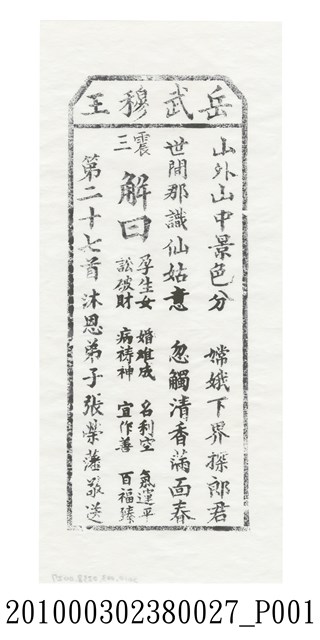 岳武穆王
山外山中景色分　嫦娥下界探郎君
世間那識仙姑意　忽觸清香滿面春
震三
解曰
孕生女　婚难成　名利空　氣運平
訟破財　病祷神　宜作善　百福臻
第二十七首沐恩弟子張榮藩敬送
201000302380027_P001